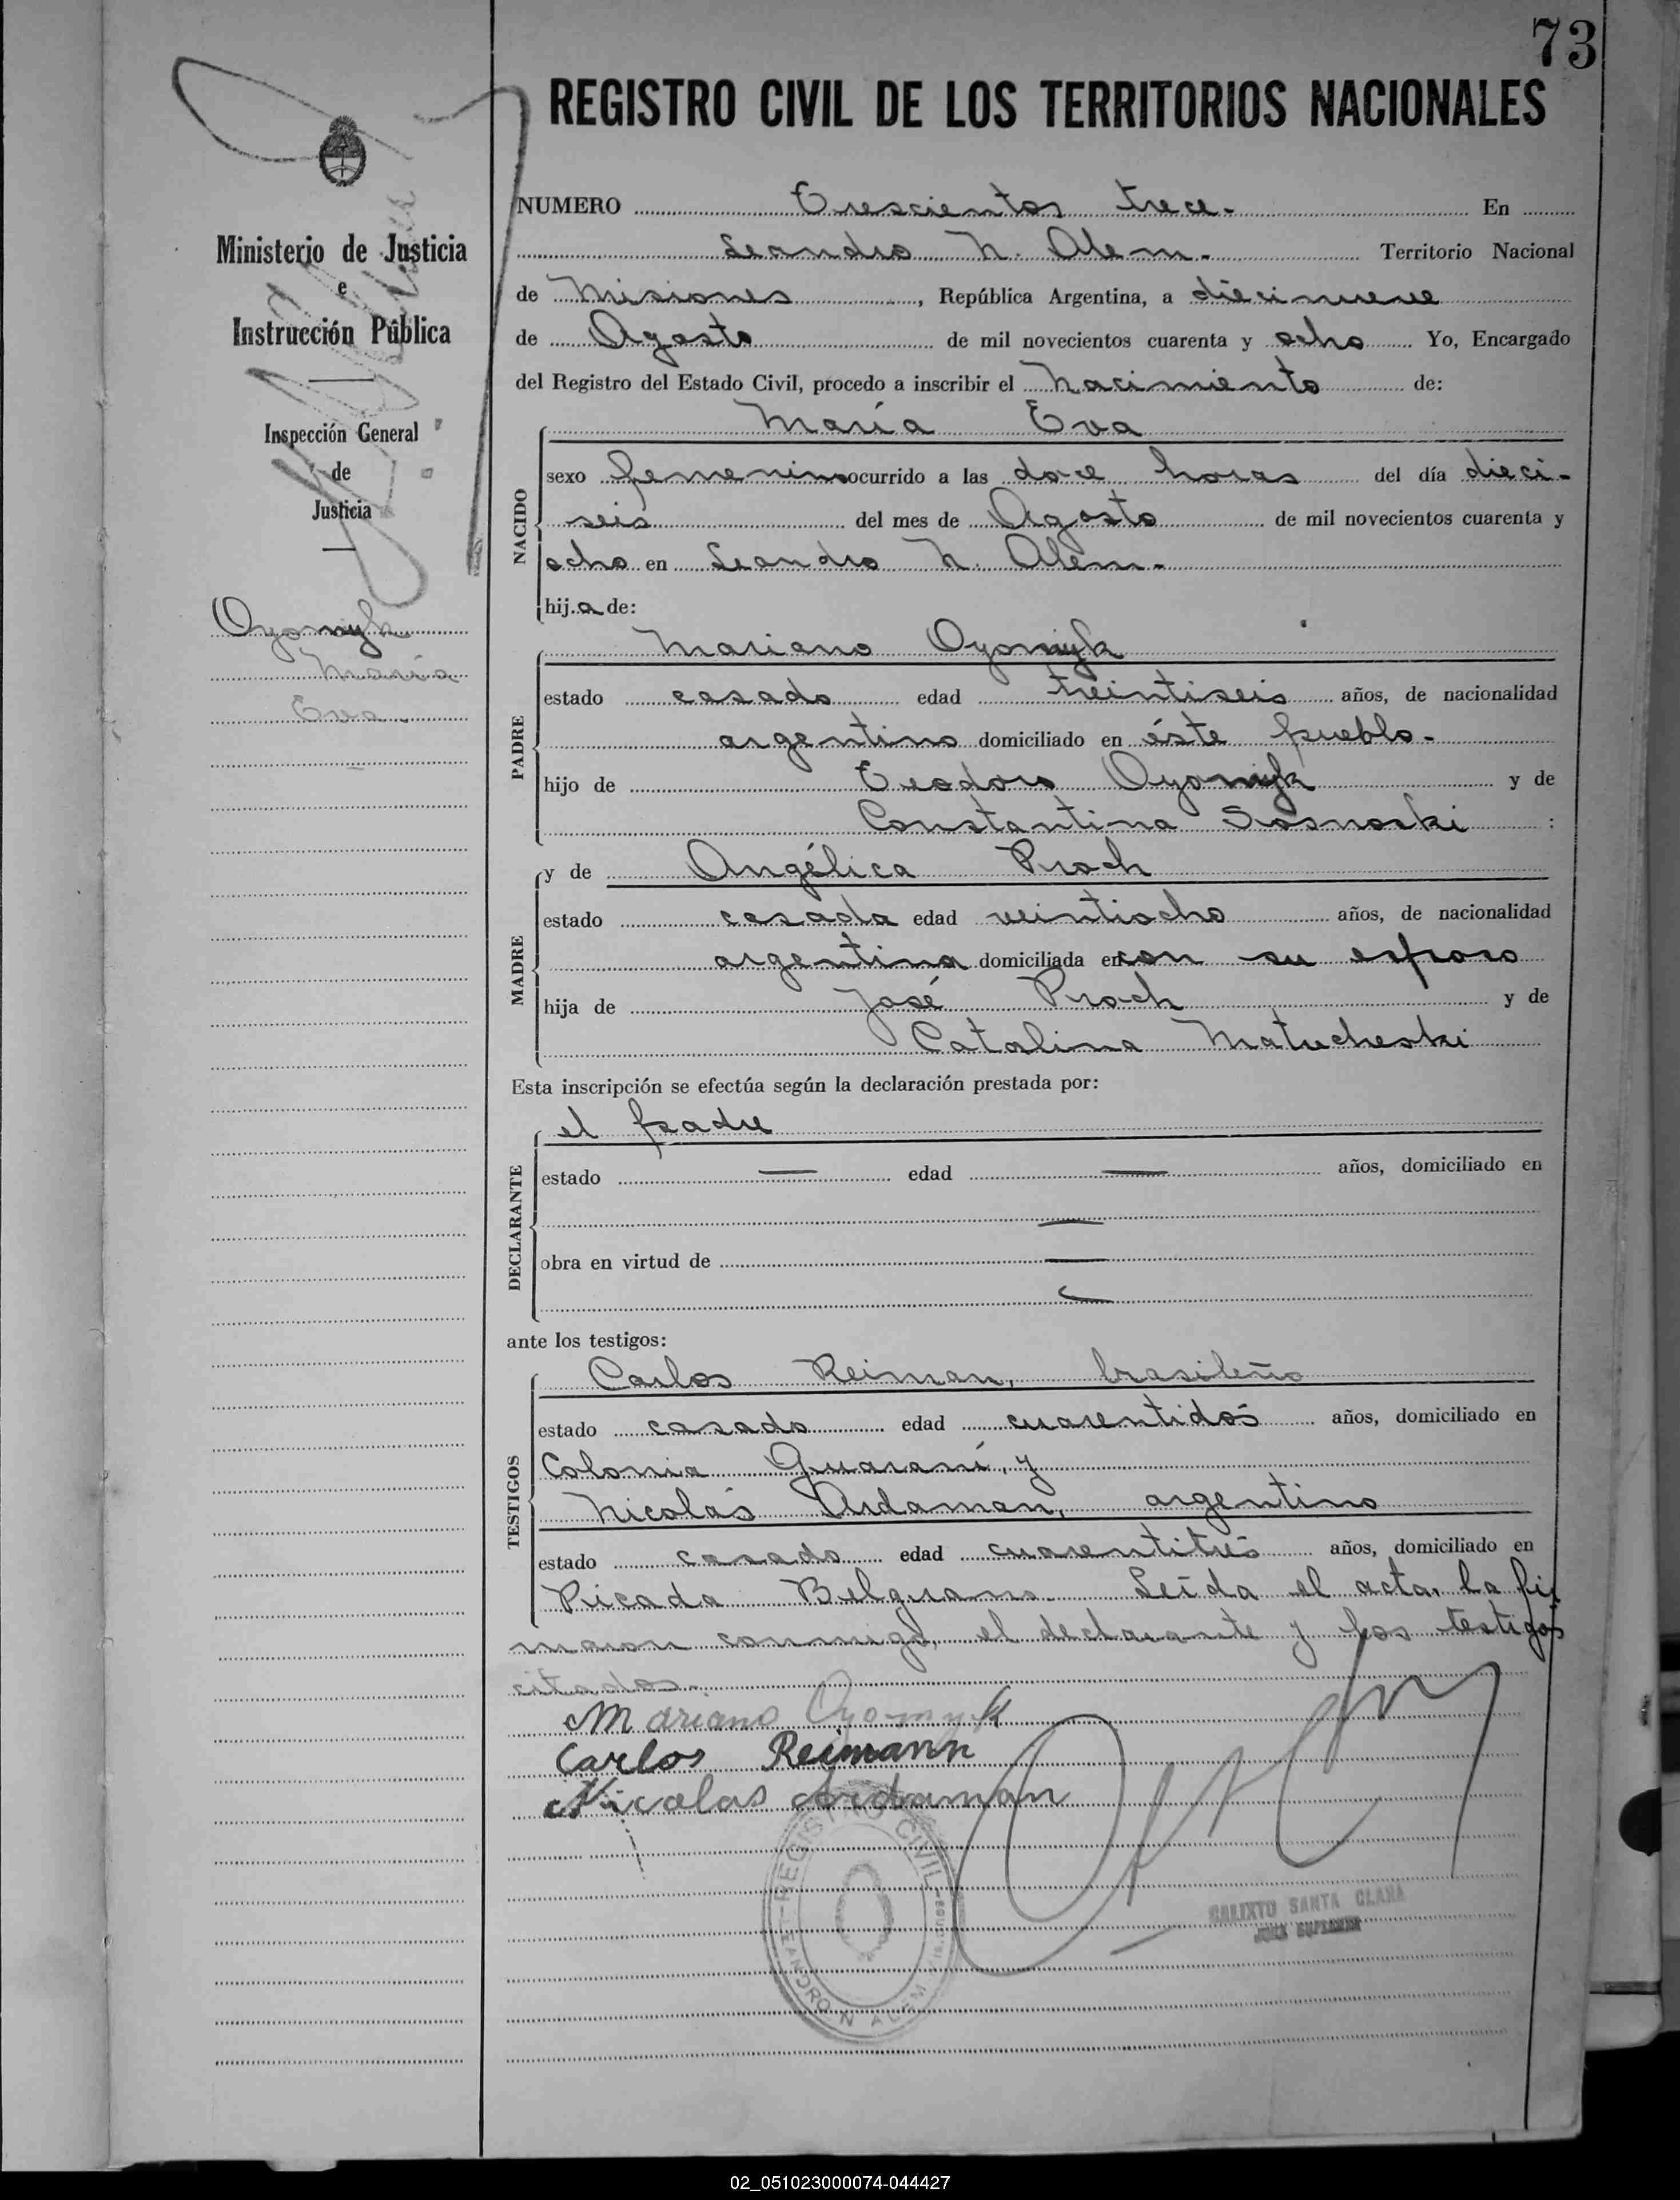 73
REGISTRO CIVIL DE LOS TERRITORIOS NACIONALES
Ministerio de Justicia
e
Instrucción Pública
Inspección General
de
Justicia
Oyomyk
María
Eva
NUMERO Trescientos trece. En
Leandro N. Alem. Territorio Nacional
de Misiones, República Argentina, a diecinueve
de Agosto de mil novecientos cuarenta y ocho Yo, Encargado
del Registro del Estado Civil, procedo a inscribir el nacimiento de:
NACIDO
María Eva
sexo femenino ocurrido a las doce horas del día dieci-
seis del mes de Agosto de mil novecientos cuarenta y
ocho en Leandro N. Alem.
hija de:
PADRE
Mariano Oyomyk
estado casado edad treintiseis años, de nacionalidad
argentino domiciliado en éste pueblo.
hijo de Teodoro Oyomyk y de
Constantina Sosnoski :
MADRE
y de Angélica Proch
estado casada edad veintiocho años, de nacionalidad
argentina domiciliada en con su esposo
hija de José Proch y de
Catalina Matucheski
Esta inscripción se efectúa según la declaración prestada por:
DECLARANTE
el padre
estado — edad — años, domiciliado en
—
obra en virtud de —
ante los testigos:
TESTIGOS
Carlos Reiman, brasileño
estado casado edad cuarentidós años, domiciliado en
Colonia Guaraní, y
Nicolás Ardaman, argentino
estado casado edad cuarentitrés años, domiciliado en
Picada Belgrano. Leída el acta, la fir
maron conmigo, el declarante y los testigos
citados.
Mariano Oyomyk
Carlos Reimann
Nicolas Ardaman
REGISTRO CIVIL
LEANDRO N. ALEM
CALIXTO SANTA CLARA
JUEZ SUPLENTE
02_051023000074-044427